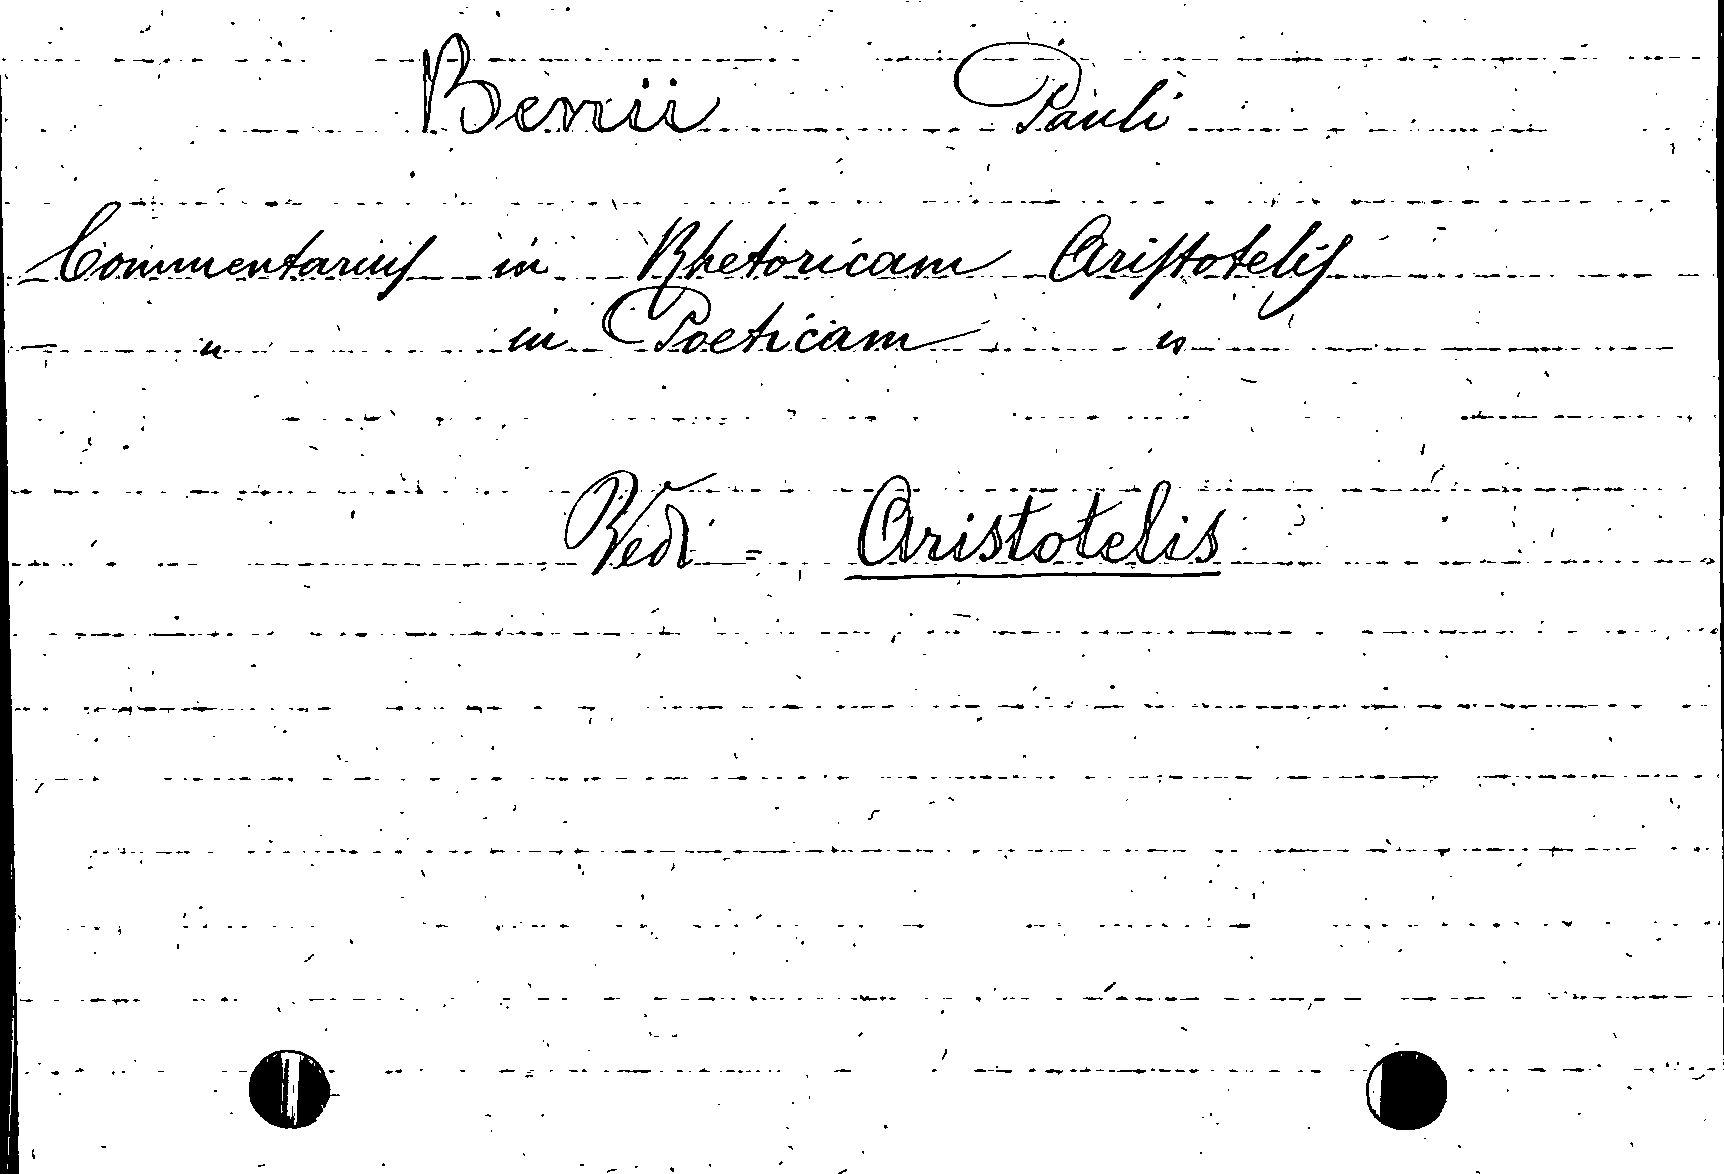 Benii Pauli
Commentarius in Rhetoricam Aristotelis
— " in Poeticam "
Vedi = Aristotelis